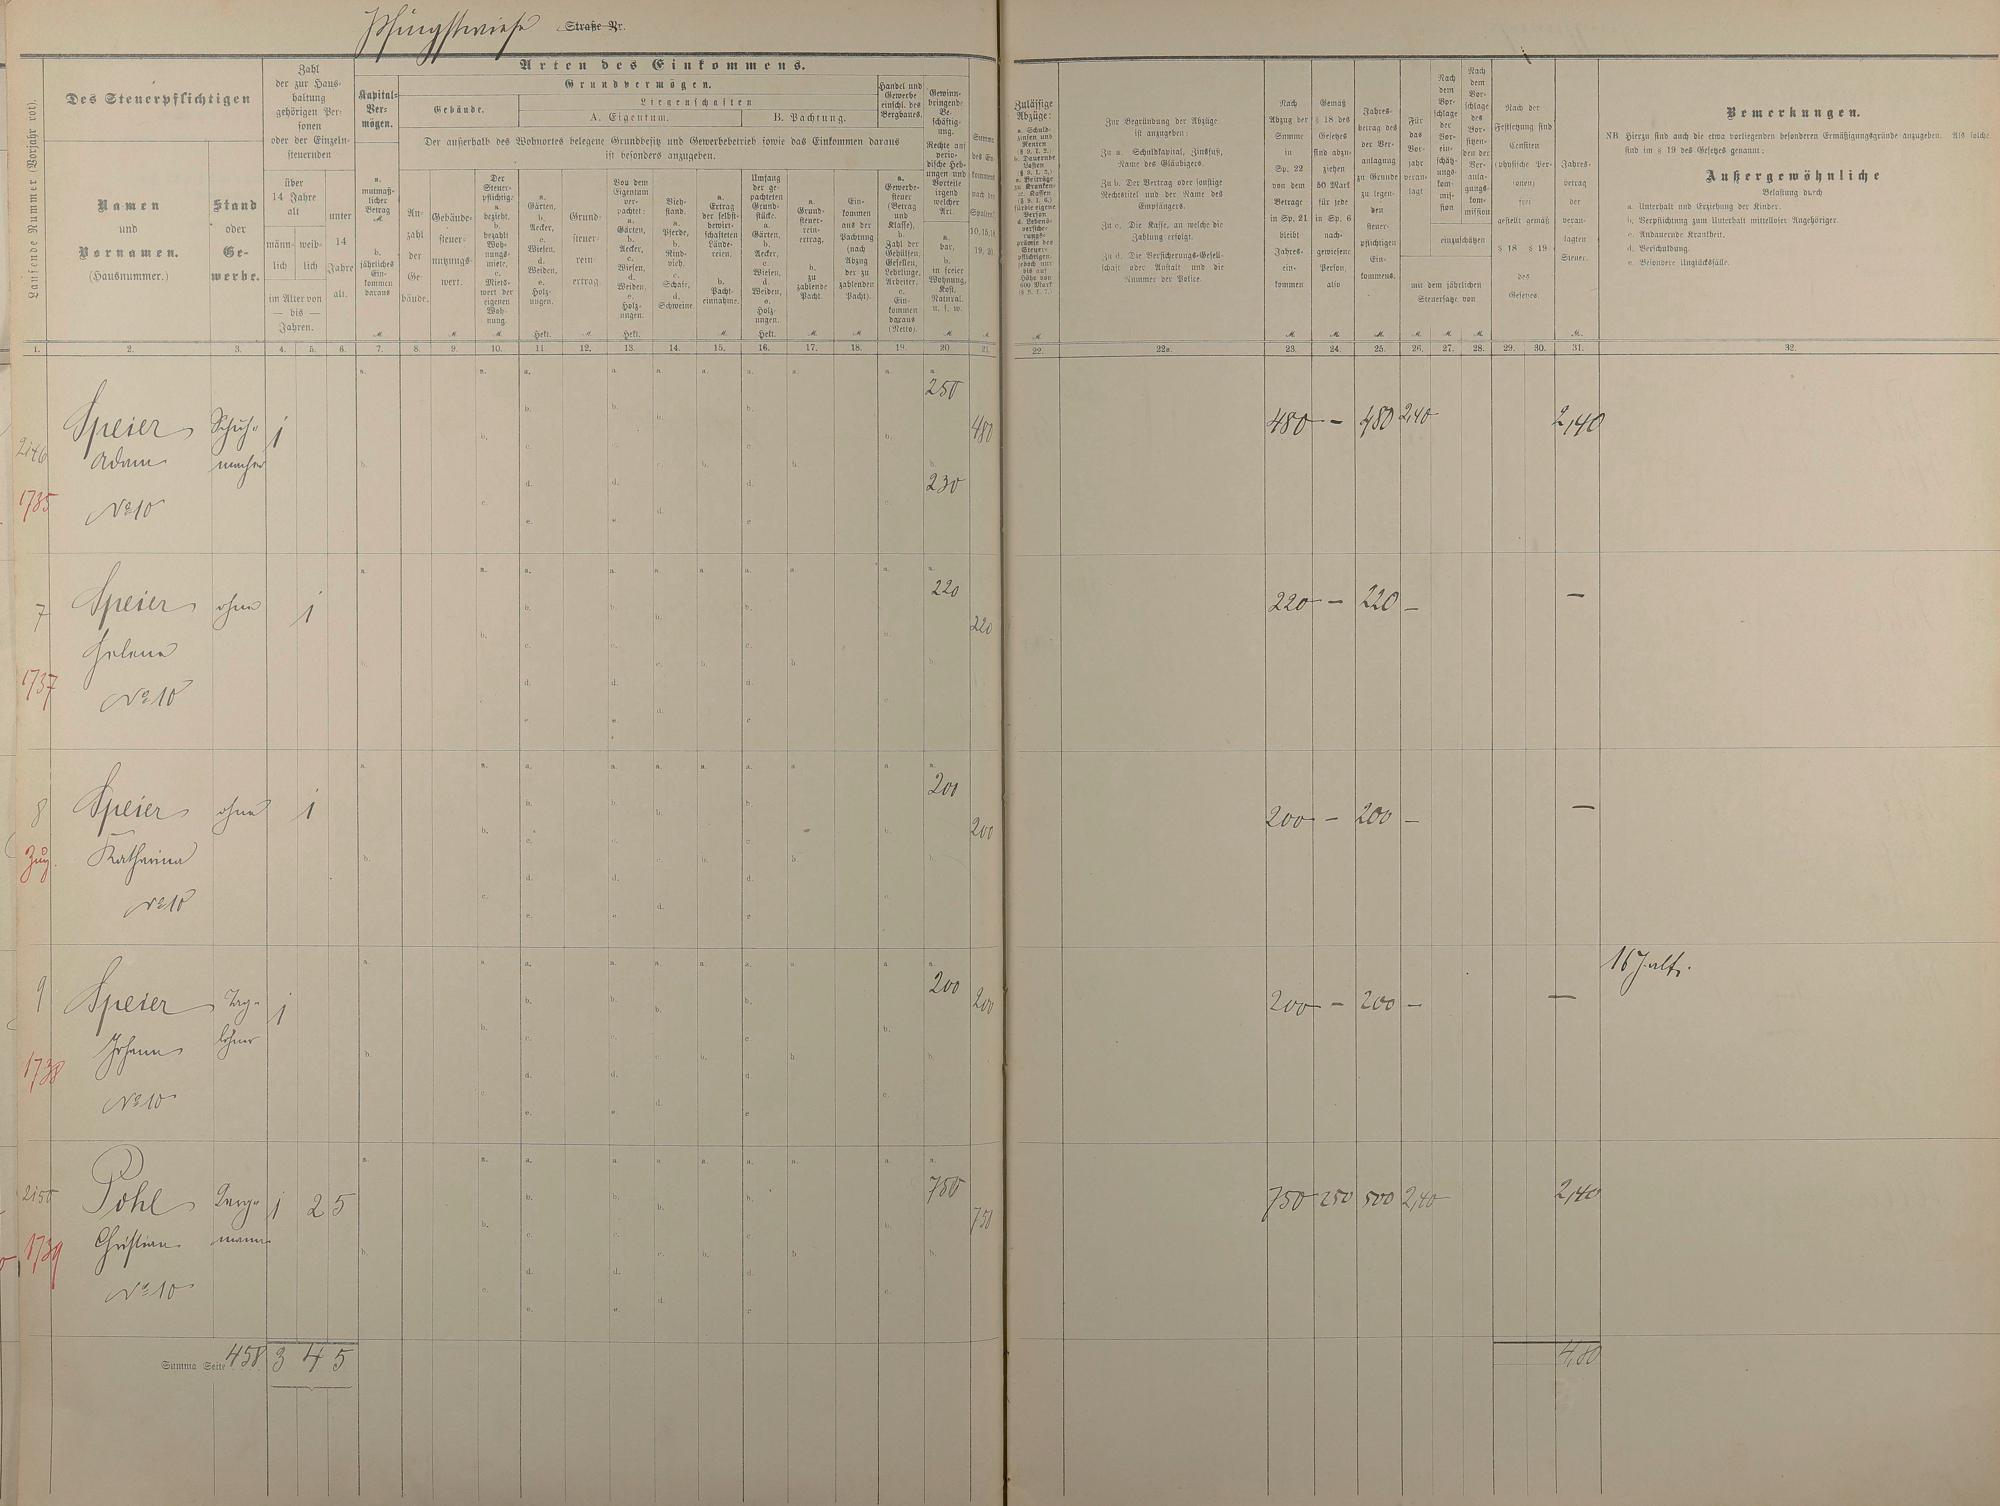 Pfingstwiese Straße Nr.
Laufende Nummer (Vorjahr rot).
Des Steuerpflichtigen
Namen
und
Vornamen.
(Hausnummer.)
Stand
oder
Ge-
werbe.
Zahl
der zur Haus-
haltung
gehörigen Per-
sonen
oder der Einzeln-
steuernden
über
14 Jahre
alt
männ-
lich
weib-
lich
im Alter von
— bis —
Jahren.
unter
14
Jahre
alt.
Arten des Einkommens.
Kapital-
Ver-
mögen.
a.
mutmaß-
licher
Betrag
M
b.
jährliches
Ein-
kommen
daraus
M.
Grundvermögen.
Gebäude.
Liegenschaften
A. Eigentum.
B. Pachtung.
Der außerhalb des Wohnortes belegene Grundbesitz und Gewerbebetrieb sowie das Einkommen daraus
ist besonders anzugeben.
An-
zahl
der
Ge-
bäude.
Gebäude-
steuer-
nutzungs-
wert.
M.
Der
Steuer-
pflichtige
a.
bezieht,
b.
bezahlt
Woh-
nungs-
miete,
c.
Miets-
wert der
eigenen
Woh-
nung.
M.
a.
Gärten,
b.
Aecker,
c.
Wiesen,
d.
Weiden,
e.
Holz-
ungen.
Hekt.
Grund-
steuer-
rein-
ertrag
M.
Von dem
Eigentum
ver-
pachtet:
a.
Gärten,
b.
Aecker,
c.
Wiesen,
d.
Weiden,
e.
Holz-
ungen.
Hekt.
Vieh-
stand.
a.
Pferde,
b.
Rind-
vieh,
c.
Schafe,
d.
Schweine.
a.
Ertrag
der selbst-
bewirt-
schafteten
Lände-
reien,
b.
Pacht-
einnahme.
M.
Umfang
der ge-
pachteten
Grund-
stücke.
a.
Gärten,
b.
Aecker,
c.
Wiesen,
d.
Weiden,
e.
Holz-
ungen.
Hekt.
a.
Grund-
steuer-
rein-
ertrag,
b.
zu
zahlende
Pacht.
M.
Ein-
kommen
aus der
Pachtung
(nach
Abzug
der zu
zahlenden
Pacht).
M
Handel und
Gewerbe
einschl. des
Bergbaues.
a.
Gewerbe-
steuer
(Betrag
und
Klasse),
b.
Zahl der
Gehülfen,
Gesellen,
Lehrlinge,
Arbeiter,
c.
Ein-
kommen
daraus
(Netto).
Gewinn-
bringende
Be-
schäftig-
ung.
Rechte auf
perio-
dische Heb-
ungen und
Vorteile
irgend
welcher
Art.
a.
bar,
b.
in freier
Wohnung,
Kost,
Natural.
u. s. w.
M
Summe
des Ein-
kommens
nach den
Spalten
Zulässige
Abzüge:
a. Schuld-
zinsen und
Renten
(§ 9. I. 2.)
b. Dauernde
Lasten
M
Zur Begründung der Abzüge
ist anzugeben:
Zu a. Schuldkapital, Zinsfuß,
Name des Gläubigers.
Zu b. Der Vertrag oder sonstige
Rechtstitel und der Name des
Empfängers.
Zu c. Die Kasse, an welche die
Zahlung erfolgt.
Zu d. Die Versicherungs-Gesell-
schaft oder Anstalt und die
Nummer der Police.
Nach
Abzug der
Summe
in
Sp. 22
von dem
Betrage
in Sp. 21
bleibt
Jahres-
ein-
kommen
M
Gemäß
§ 18 des
Gesetzes
sind abzu-
ziehen
50 Mark
für jede
in Sp. 6
nach-
gewiesene
Person,
also
M
Jahres-
betrag des
der Ver-
anlagung
zu Grunde
zu legen-
den
steuer-
pflichtigen
Ein-
kommens.
M
Für
das
Vor-
jahr
veran-
lagt
Nach
dem
Vor-
schlage
der
Vor-
ein-
schätz-
ungs-
kom-
mis-
sion
Nach
dem
Vor-
schlage
des
Vor-
sitzen-
den der
Ver-
anla-
gungs-
kom-
mission
einzuschätzen
mit dem jährlichen
Steuersatze von
M. M. M.
Nach der
Festsetzung sind
Censiten
(physische Per-
sonen)
frei
gestellt gemäß
§ 18 § 19
des
Gesetzes.
Jahres-
betrag
der
veran-
lagten
Steuer.
M.
Bemerkungen.
NB. Hierzu sind auch die etwa vorliegenden besonderen Ermäßigungsgründe anzugeben. Als solche
sind im § 19 des Gesetzes genannt:
Außergewöhnliche
Belastung durch
a. Unterhalt und Erziehung der Kinder.
b. Verpflichtung zum Unterhalt mittelloser Angehöriger.
c. Andauernde Krankheit.
d. Verschuldung.
e. Besondere Unglücksfälle.
1. 2. 3. 4. 5. 6. 7. 8. 9. 10. 11. 12. 13. 14. 15. 16. 17. 18. 19. 20. 21. 22. 22a. 23. 24. 25. 26. 27. 28. 29. 30. 31. 32.
250
2146 Speier Schuh- 1 480 480 — 480 2,40 2,40
Adam macher
1735 No 10 230
220
7 Speier ohne 1 220 220 — 220 — —
Helene
1737 No 10
200
8 Speier ohne 1 200 200 — 200 — —
Zug. Katharina
No 10
16 J. alt.
9 Speier Tag- 1 200 200 200 — 200 — —
Johann löhner
1738 No 10
2150 Pohl Berg- 1 2 5 750 750 750 250 500 2,40 2,40
Christian mann
1739 No 10
Summa Seite 458 3 4 5 4,80